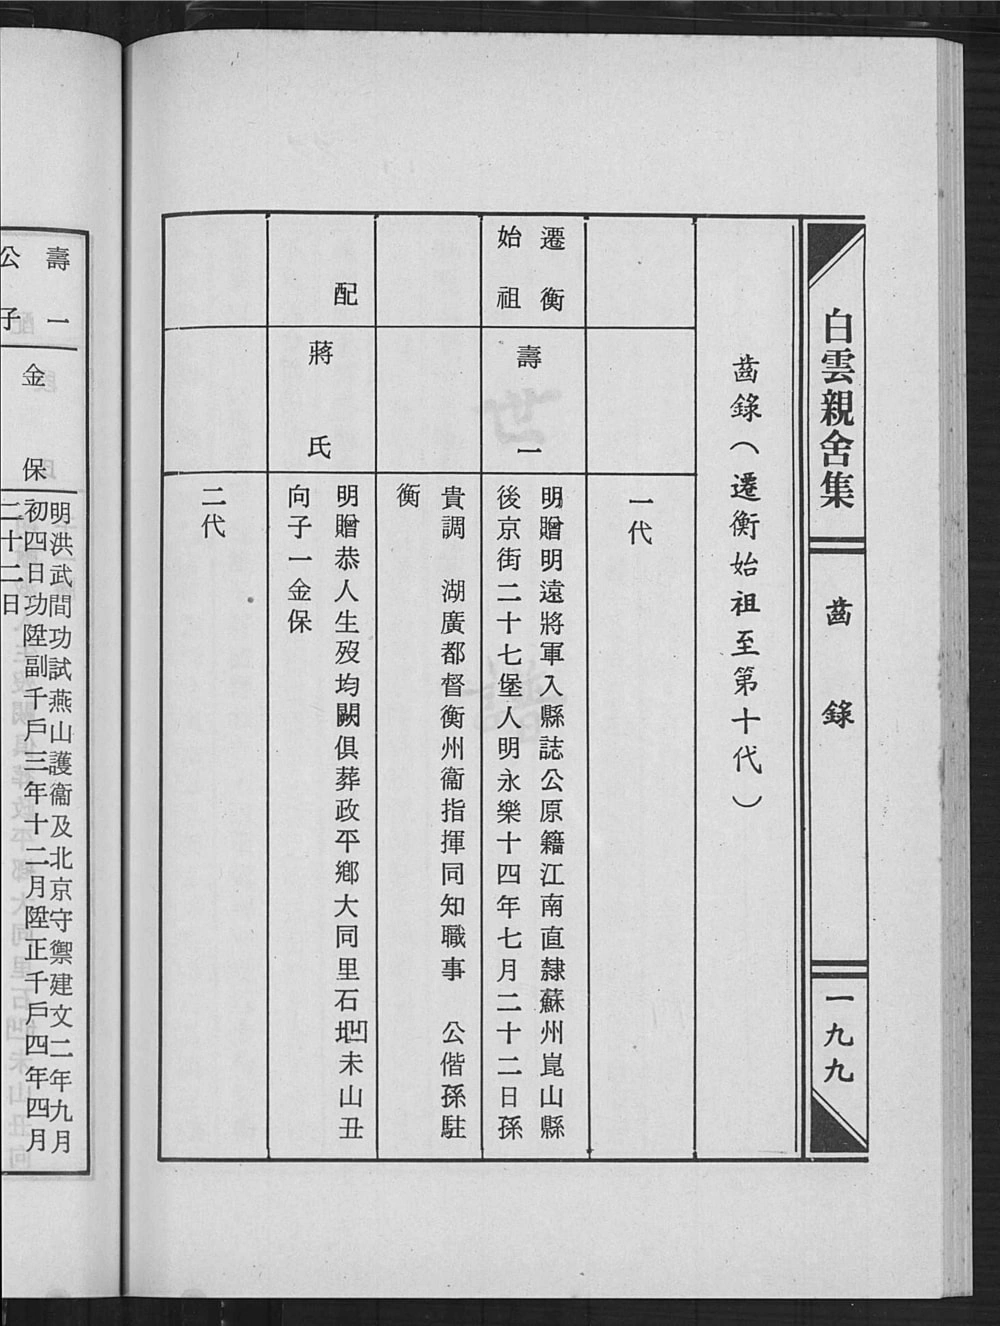 白雲親舍集
齒錄
一九九
齒錄（遷衡始祖至第十代）
一代
遷衡
始祖
壽一
明贈明遠將軍入縣誌公原籍江南直隸蘇州崑山縣
後京街二十七堡人明永樂十四年七月二十二日孫
貴調　湖廣都督衡州衞指揮同知職事　公偕孫駐
衡
配
蔣氏
明贈恭人生歿均闕俱葬政平鄉大同里石坳未山丑
向子一金保
二代
壽一
公子
金保
明洪武間功試燕山護衞及北京守禦建文二年九月
初四日功陞副千戶三年十二月陞正千戶四年四月
二十二日